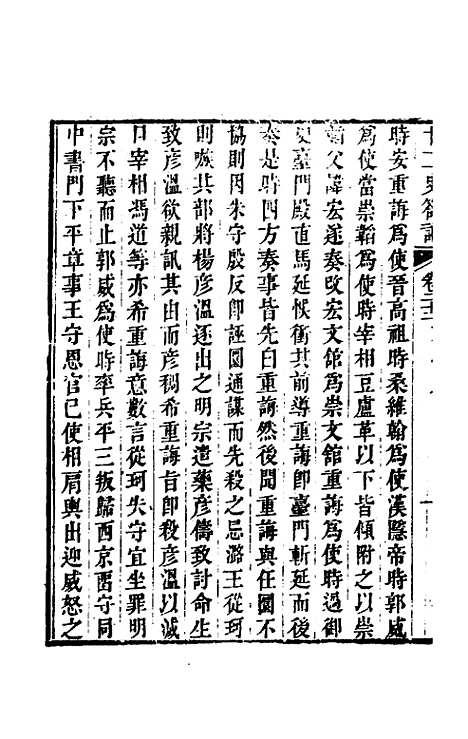 廿二史劄記 卷二十二
時安重誨爲使晉高祖時桑維翰爲使漢隱帝時郭威
爲使當崇韜爲使時宰相豆盧革以下皆傾附之以崇
韜父諱宏遂奏改宏文館爲崇文館重誨爲使時過御
史臺門殿直馬延悞衝其前導重誨卽臺門斬延而後
奏是時四方奏事皆先白重誨然後聞重誨與任圜不
協則因朱守殷反卽誣圜通謀而先殺之忌潞王從珂
則嗾其部將楊彥溫逐出之明宗遣藥彥儔致討命生
致彥溫欲親訊其由而彥稠希重誨旨卽殺彥溫以滅
口宰相馮道等亦希重誨意數言從珂失守宜坐罪明
宗不聽而止郭威爲使時率兵平三叛歸西京畱守同
中書門下平章事王守恩官已使相肩輿出迎威怒之